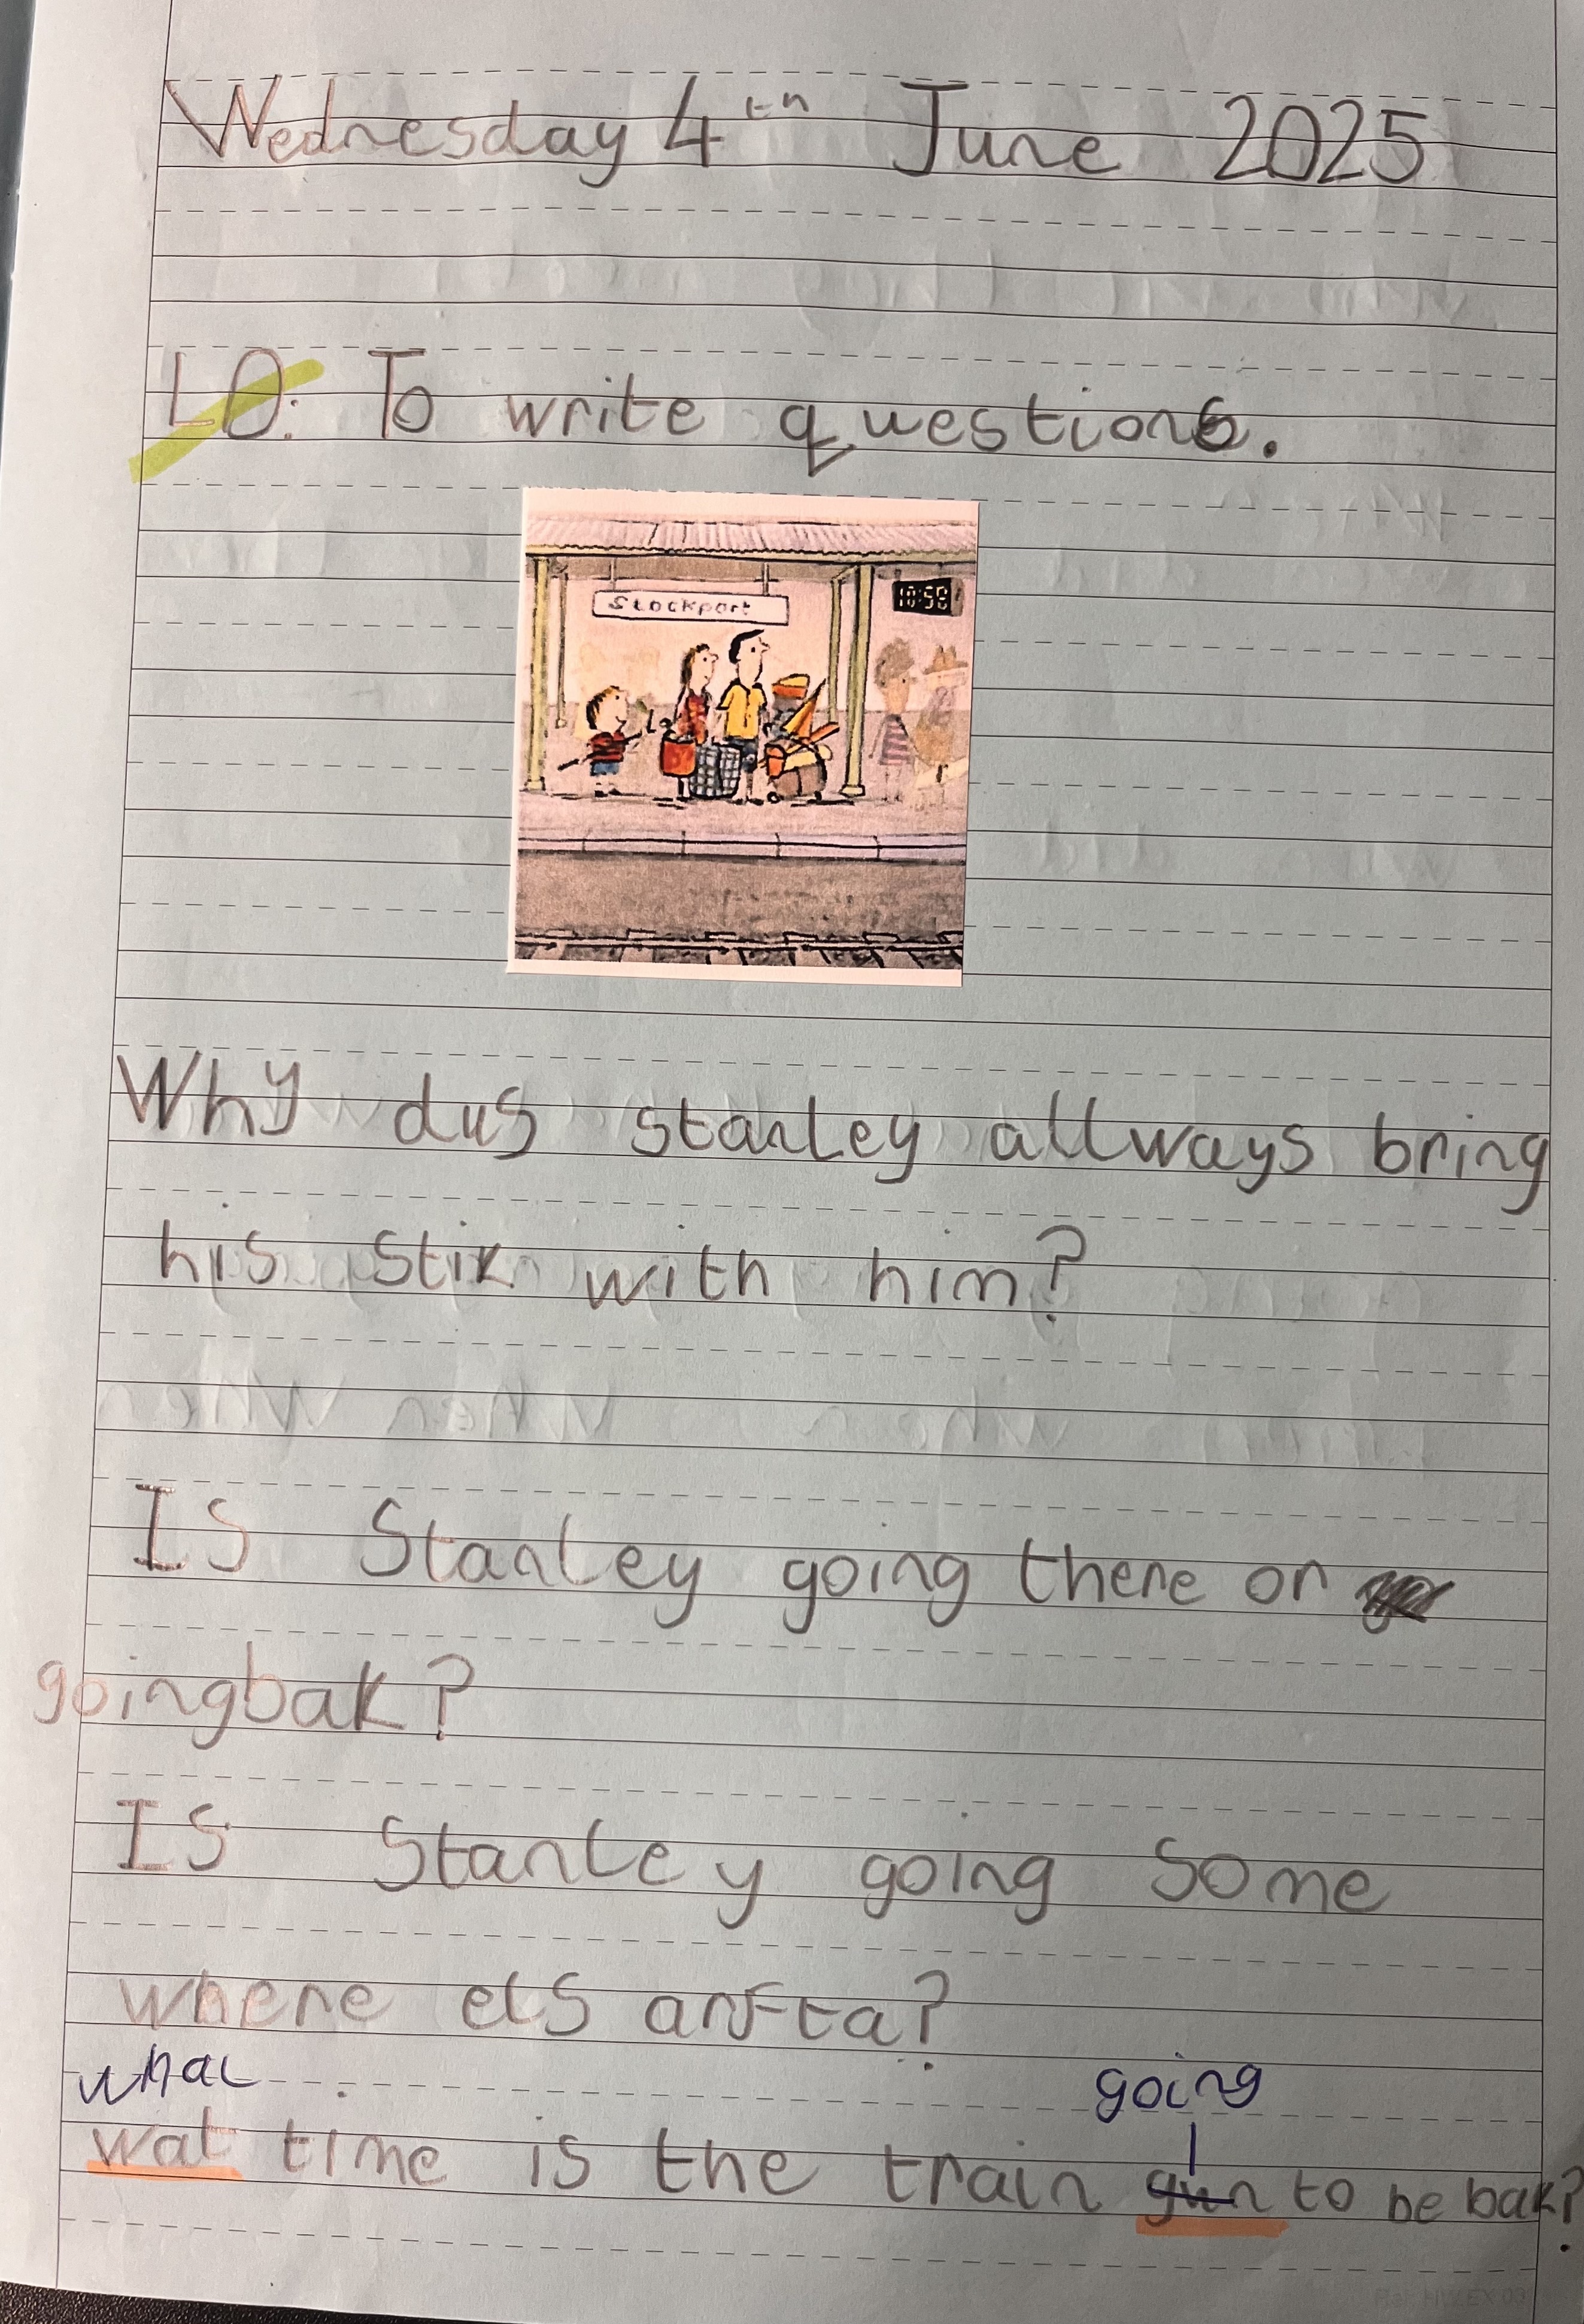 Wednesday 4th June 2025
LO: To write questions.
Stockport
10:56
Why dus stanley allways bring
his stik with him?
Is Stanley going there or
goingbak?
Is Stanley going some
where els arfta?
what going
wat time is the train gun to be bak?